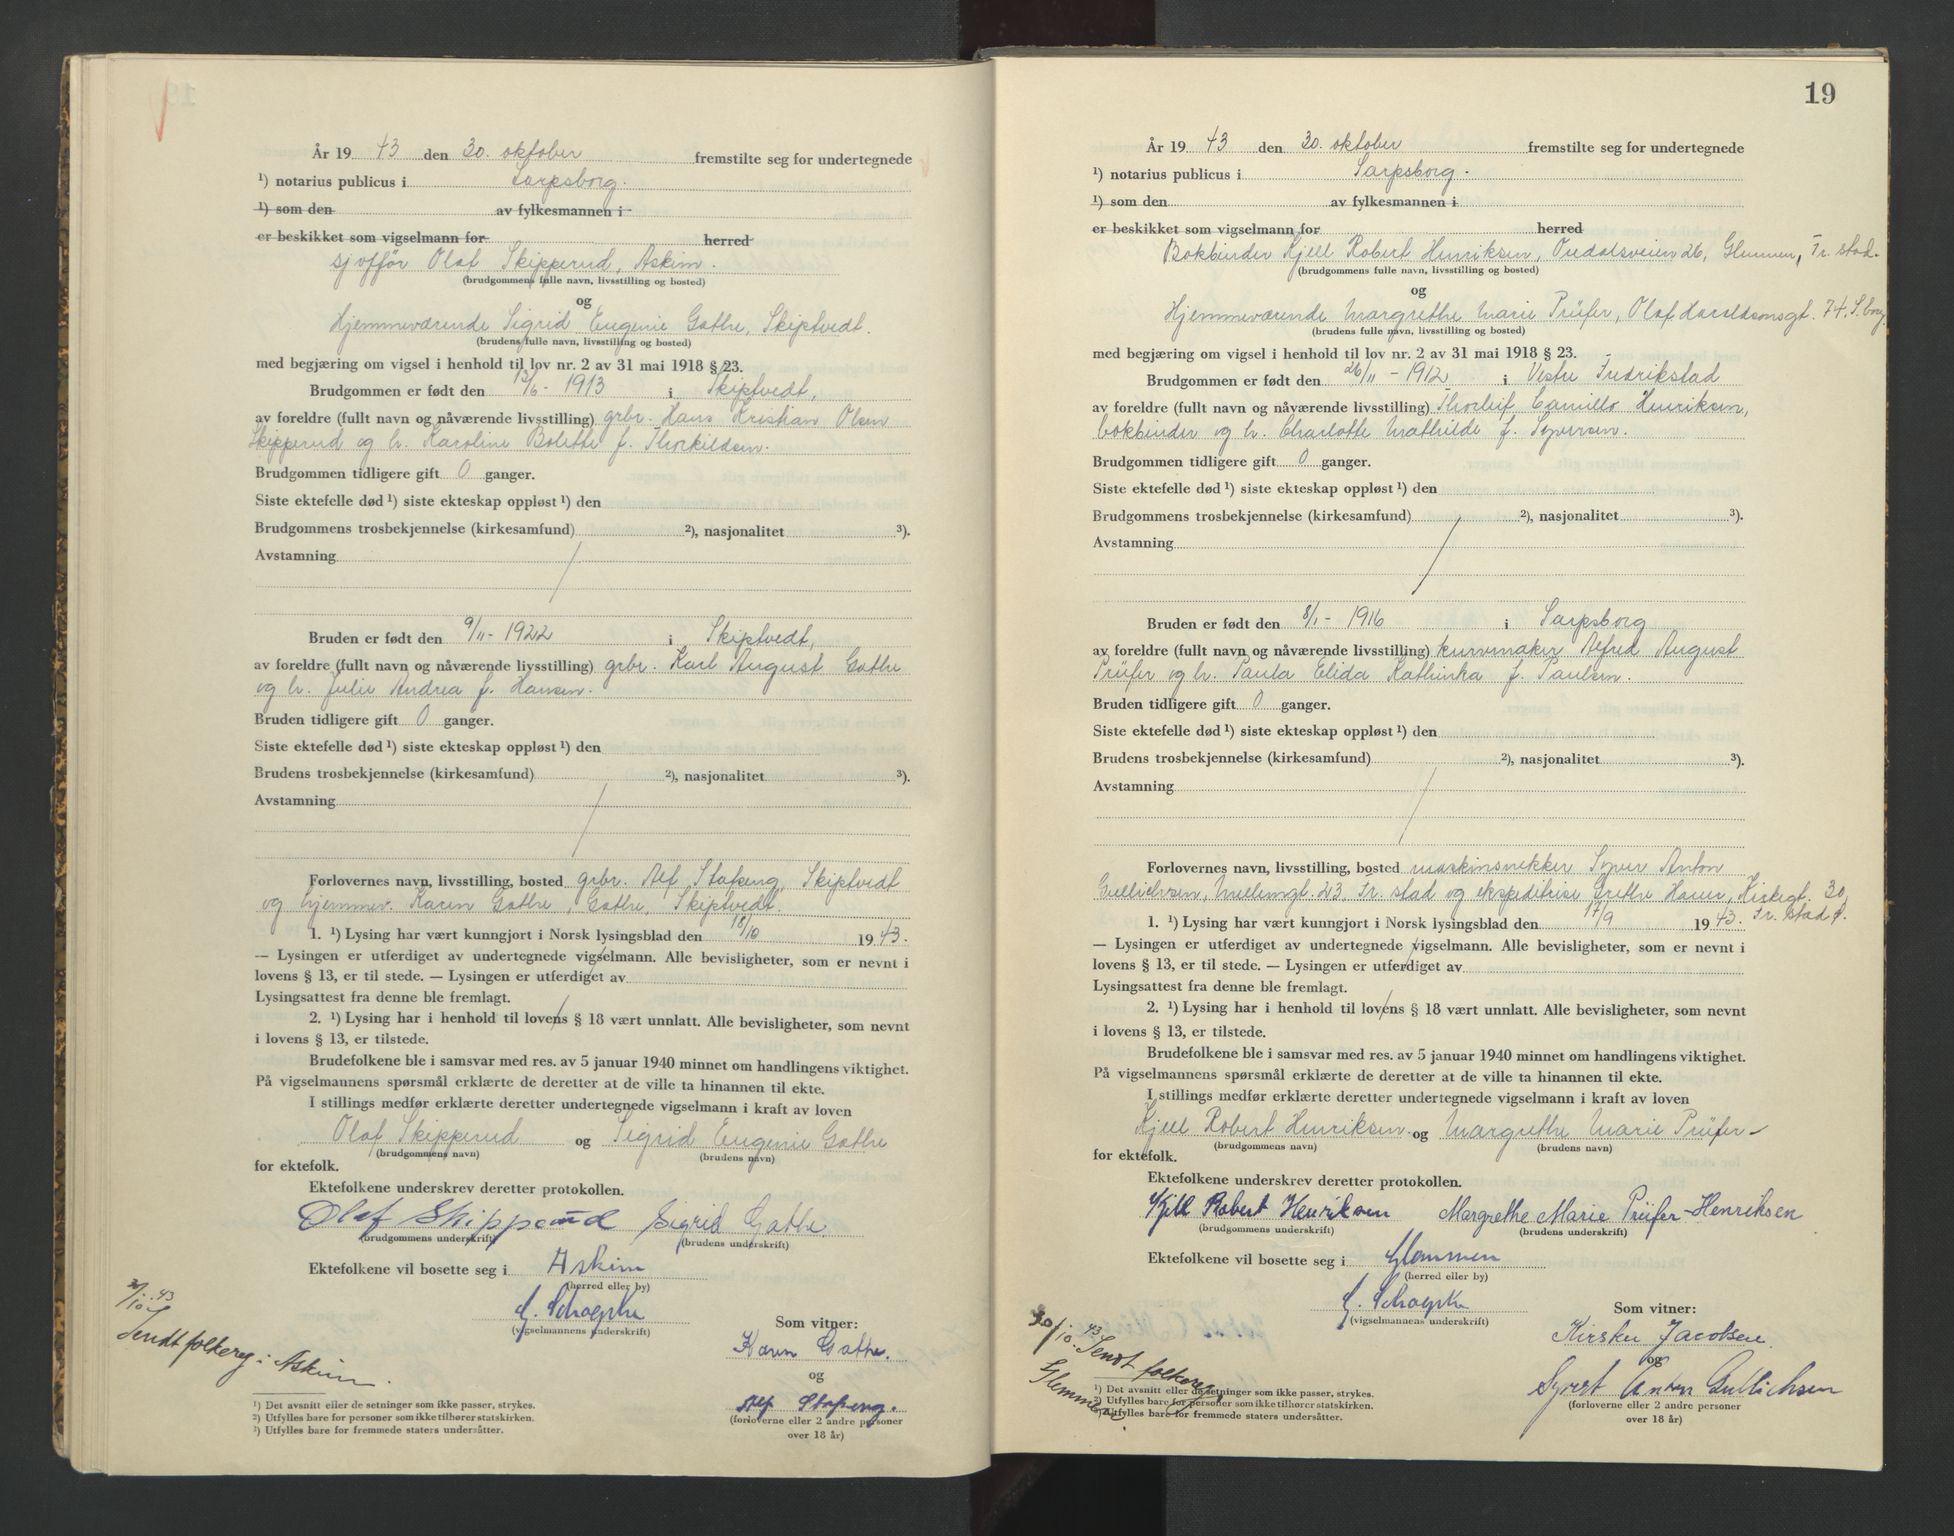 År 19 43 den 30. oktober fremstilte seg for undertegnede
¹) notarius publicus i Sarpsborg.
¹) som den av fylkesmannen i
er beskikket som vigselmann for herred
sjofför Olaf Skipperud, Askim.
(brudgommens fulle navn, livsstilling og bosted)
og
Hjemmeværende Sigrid Eugenie Gathe, Skiptvedt.
(brudens fulle navn, livsstilling og bosted)
med begjæring om vigsel i henhold til lov nr. 2 av 31 mai 1918 § 23.
Brudgommen er født den 13/6 - 1913 i Skiptvedt,
av foreldre (fullt navn og nåværende livsstilling) grbr. Hans Kristian Olsen
Skipperud og h. Karoline Bolette f. Thorkildsen.
Brudgommen tidligere gift 0 ganger.
Siste ektefelle død ¹) siste ekteskap oppløst ¹) den
Brudgommens trosbekjennelse (kirkesamfund) ²), nasjonalitet ³).
Avstamning
Bruden er født den 9/11 - 1922 i Skiptvedt,
av foreldre (fullt navn og nåværende livsstilling) grbr. Karl August Gathe
og h. Julie Andrea f. Hansen.
Bruden tidligere gift 0 ganger.
Siste ektefelle død ¹) siste ekteskap oppløst ¹) den
Brudens trosbekjennelse (kirkesamfund) ²), nasjonalitet ³).
Avstamning
Forlovernes navn, livsstilling, bosted grbr. Alf Stafseng, Skiptvedt
og hjemmev. Karen Gathe, Gathe, Skiptvedt.
1. ¹) Lysing har vært kunngjort i Norsk lysingsblad den 18/10 1943.
— Lysingen er utferdiget av undertegnede vigselmann. Alle bevisligheter, som er nevnt i
lovens § 13, er til stede. — Lysingen er utferdiget av
Lysingsattest fra denne ble fremlagt.
2. ¹) Lysing har i henhold til lovens § 18 vært unnlatt. Alle bevisligheter, som nevnt
i lovens § 13, er tilstede.
Brudefolkene ble i samsvar med res. av 5 januar 1940 minnet om handlingens viktighet.
På vigselmannens spørsmål erklærte de deretter at de ville ta hinannen til ekte.
I stillings medfør erklærte deretter undertegnede vigselmann i kraft av loven
Olaf Skipperud og Sigrid Eugenie Gathe
(brudgommens navn) (brudens navn)
for ektefolk.
Ektefolkene underskrev deretter protokollen.
Olaf Skipperud Sigrid Gathe.
(brudgommens underskrift) (brudens underskrift)
Ektefolkene vil bosette seg i Askim
(herred eller by)
(vigselmannens underskrift)
Som vitner:
Karen Gathe.
og
Alf Stafseng.
(forloverne eller 2 andre personer
over 18 år)
/10.43
Sendt folkereg. i Askim.
¹) Det avsnitt eller de setninger som ikke passer, strykes.
²) Utfylles bare for personer som ikke tilhører statskirken.
³) Utfylles bare for fremmede staters undersåtter.
19
År 19 43 den 30. oktober fremstilte seg for undertegnede
¹) notarius publicus i Sarpsborg.
¹) som den av fylkesmannen i
er beskikket som vigselmann for herred
Bokbinder Kjell Robert Henriksen, Oredalsveien 26, Glemmen, Fr. stad.
(brudgommens fulle navn, livsstilling og bosted)
og
Hjemmeværende Margrethe Marie Prüfer, Olaf Haraldsonsgt. 74, S.borg
(brudens fulle navn, livsstilling og bosted)
med begjæring om vigsel i henhold til lov nr. 2 av 31 mai 1918 § 23.
Brudgommen er født den 26/11 - 1912 i Vestre Fredrikstad
av foreldre (fullt navn og nåværende livsstilling) Thorleif Camillo Henriksen,
bokbinder og h. Charlotte Mathilde f. Syversen.
Brudgommen tidligere gift 0 ganger.
Siste ektefelle død ¹) siste ekteskap oppløst ¹) den
Brudgommens trosbekjennelse (kirkesamfund) ²), nasjonalitet ³).
Avstamning
Bruden er født den 8/1 - 1916 i Sarpsborg
av foreldre (fullt navn og nåværende livsstilling) kurvmaker Alfred August
Prüfer og h. Paula Elida Kathinka f. Paulsen.
Bruden tidligere gift 0 ganger.
Siste ektefelle død ¹) siste ekteskap oppløst ¹) den
Brudens trosbekjennelse (kirkesamfund) ²), nasjonalitet ³).
Avstamning
Forlovernes navn, livsstilling, bosted maskinsnekker Syver Anton
Gullichsen, Mellemgt. 23 Fr. stad og ekspeditrise Grethe 30,
1. ¹) Lysing har vært kunngjort i Norsk lysingsblad den 17/9 1943. Fr. stad
— Lysingen er utferdiget av undertegnede vigselmann. Alle bevisligheter, som er nevnt i
lovens § 13, er til stede. — Lysingen er utferdiget av
Lysingsattest fra denne ble fremlagt.
2. ¹) Lysing har i henhold til lovens § 18 vært unnlatt. Alle bevisligheter, som nevnt
i lovens § 13, er tilstede.
Brudefolkene ble i samsvar med res. av 5 januar 1940 minnet om handlingens viktighet.
På vigselmannens spørsmål erklærte de deretter at de ville ta hinannen til ekte.
I stillings medfør erklærte deretter undertegnede vigselmann i kraft av loven
Kjell Robert Henriksen. og Margrethe Marie Prüfer
(brudgommens navn) (brudens navn)
for ektefolk.
Ektefolkene underskrev deretter protokollen.
Kjell Robert Henriksen Margrethe Marie Prüfer-Henriksen
(brudgommens underskrift) (brudens underskrift)
Ektefolkene vil bosette seg i Glemmen
(herred eller by)
(vigselmannens underskrift)
Som vitner:
Kirsten Jacobsen
og
Syvert Anton Gullichsen
(forloverne eller 2 andre personer
over 18 år)
30/10.43 Sendt folkereg.
Glemmen.
¹) Det avsnitt eller de setninger som ikke passer, strykes.
²) Utfylles bare for personer som ikke tilhører statskirken.
³) Utfylles bare for fremmede staters undersåtter.